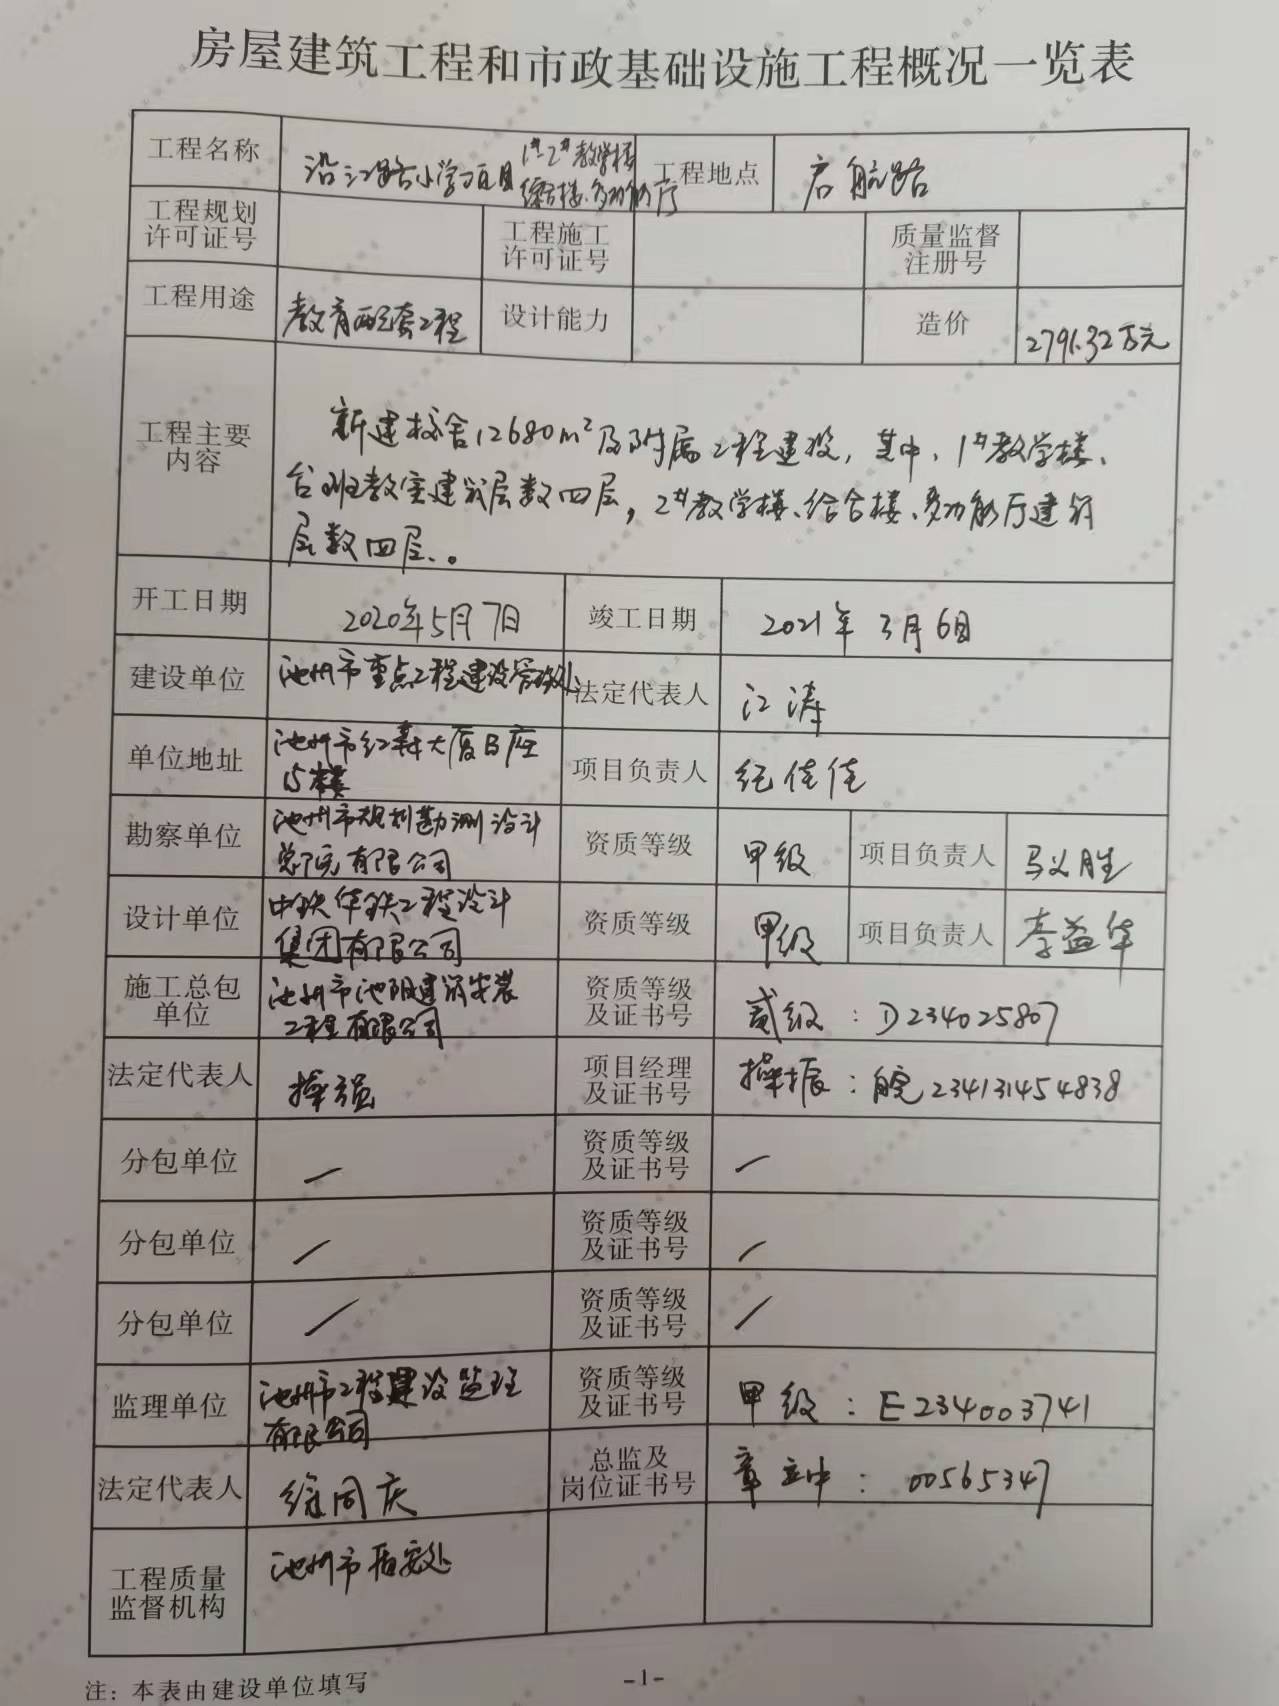 房屋建筑工程和市政基础设施工程概况一览表
工程名称 沿江路小学项目 1#、2#教学楼 综合楼、多功能厅 工程地点 启航路
工程规划许可证号 工程施工许可证号 质量监督注册号
工程用途 教育配套工程 设计能力 造价 2791.32万元
工程主要内容
新建校舍12680m²及附属工程建设,其中,1#教学楼、
合班教室建筑层数四层,2#教学楼、综合楼、多功能厅建筑
层数四层、。
开工日期 2020年5月7日 竣工日期 2021年3月6日
建设单位 池州市重点工程建设管理处 法定代表人 江涛
单位地址 池州市红森大厦B座15楼 项目负责人 纪佳佳
勘察单位 池州市规划勘测设计总院有限公司 资质等级 甲级 项目负责人 马义胜
设计单位 中铁华铁工程设计集团有限公司 资质等级 甲级 项目负责人 李益华
施工总包单位 池州市池阳建筑安装工程有限公司 资质等级及证书号 贰级:D234025807
法定代表人 操强 项目经理及证书号 操振:皖234131454838
分包单位 / 资质等级及证书号 /
分包单位 / 资质等级及证书号 /
分包单位 / 资质等级及证书号 /
监理单位 池州市工程建设监理有限公司 资质等级及证书号 甲级:E234003741
法定代表人 徐同庆 总监及岗位证书号 章立中:00565347
工程质量监督机构 池州市质安处
注:本表由建设单位填写
-1-